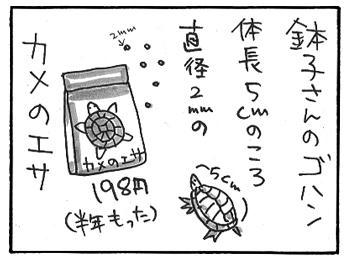 鉢子さんのゴハン
体長5cmのころ
直径2mmの
カメのエサ
2mm
カメのエサ
198円
(半年もった)
5cm